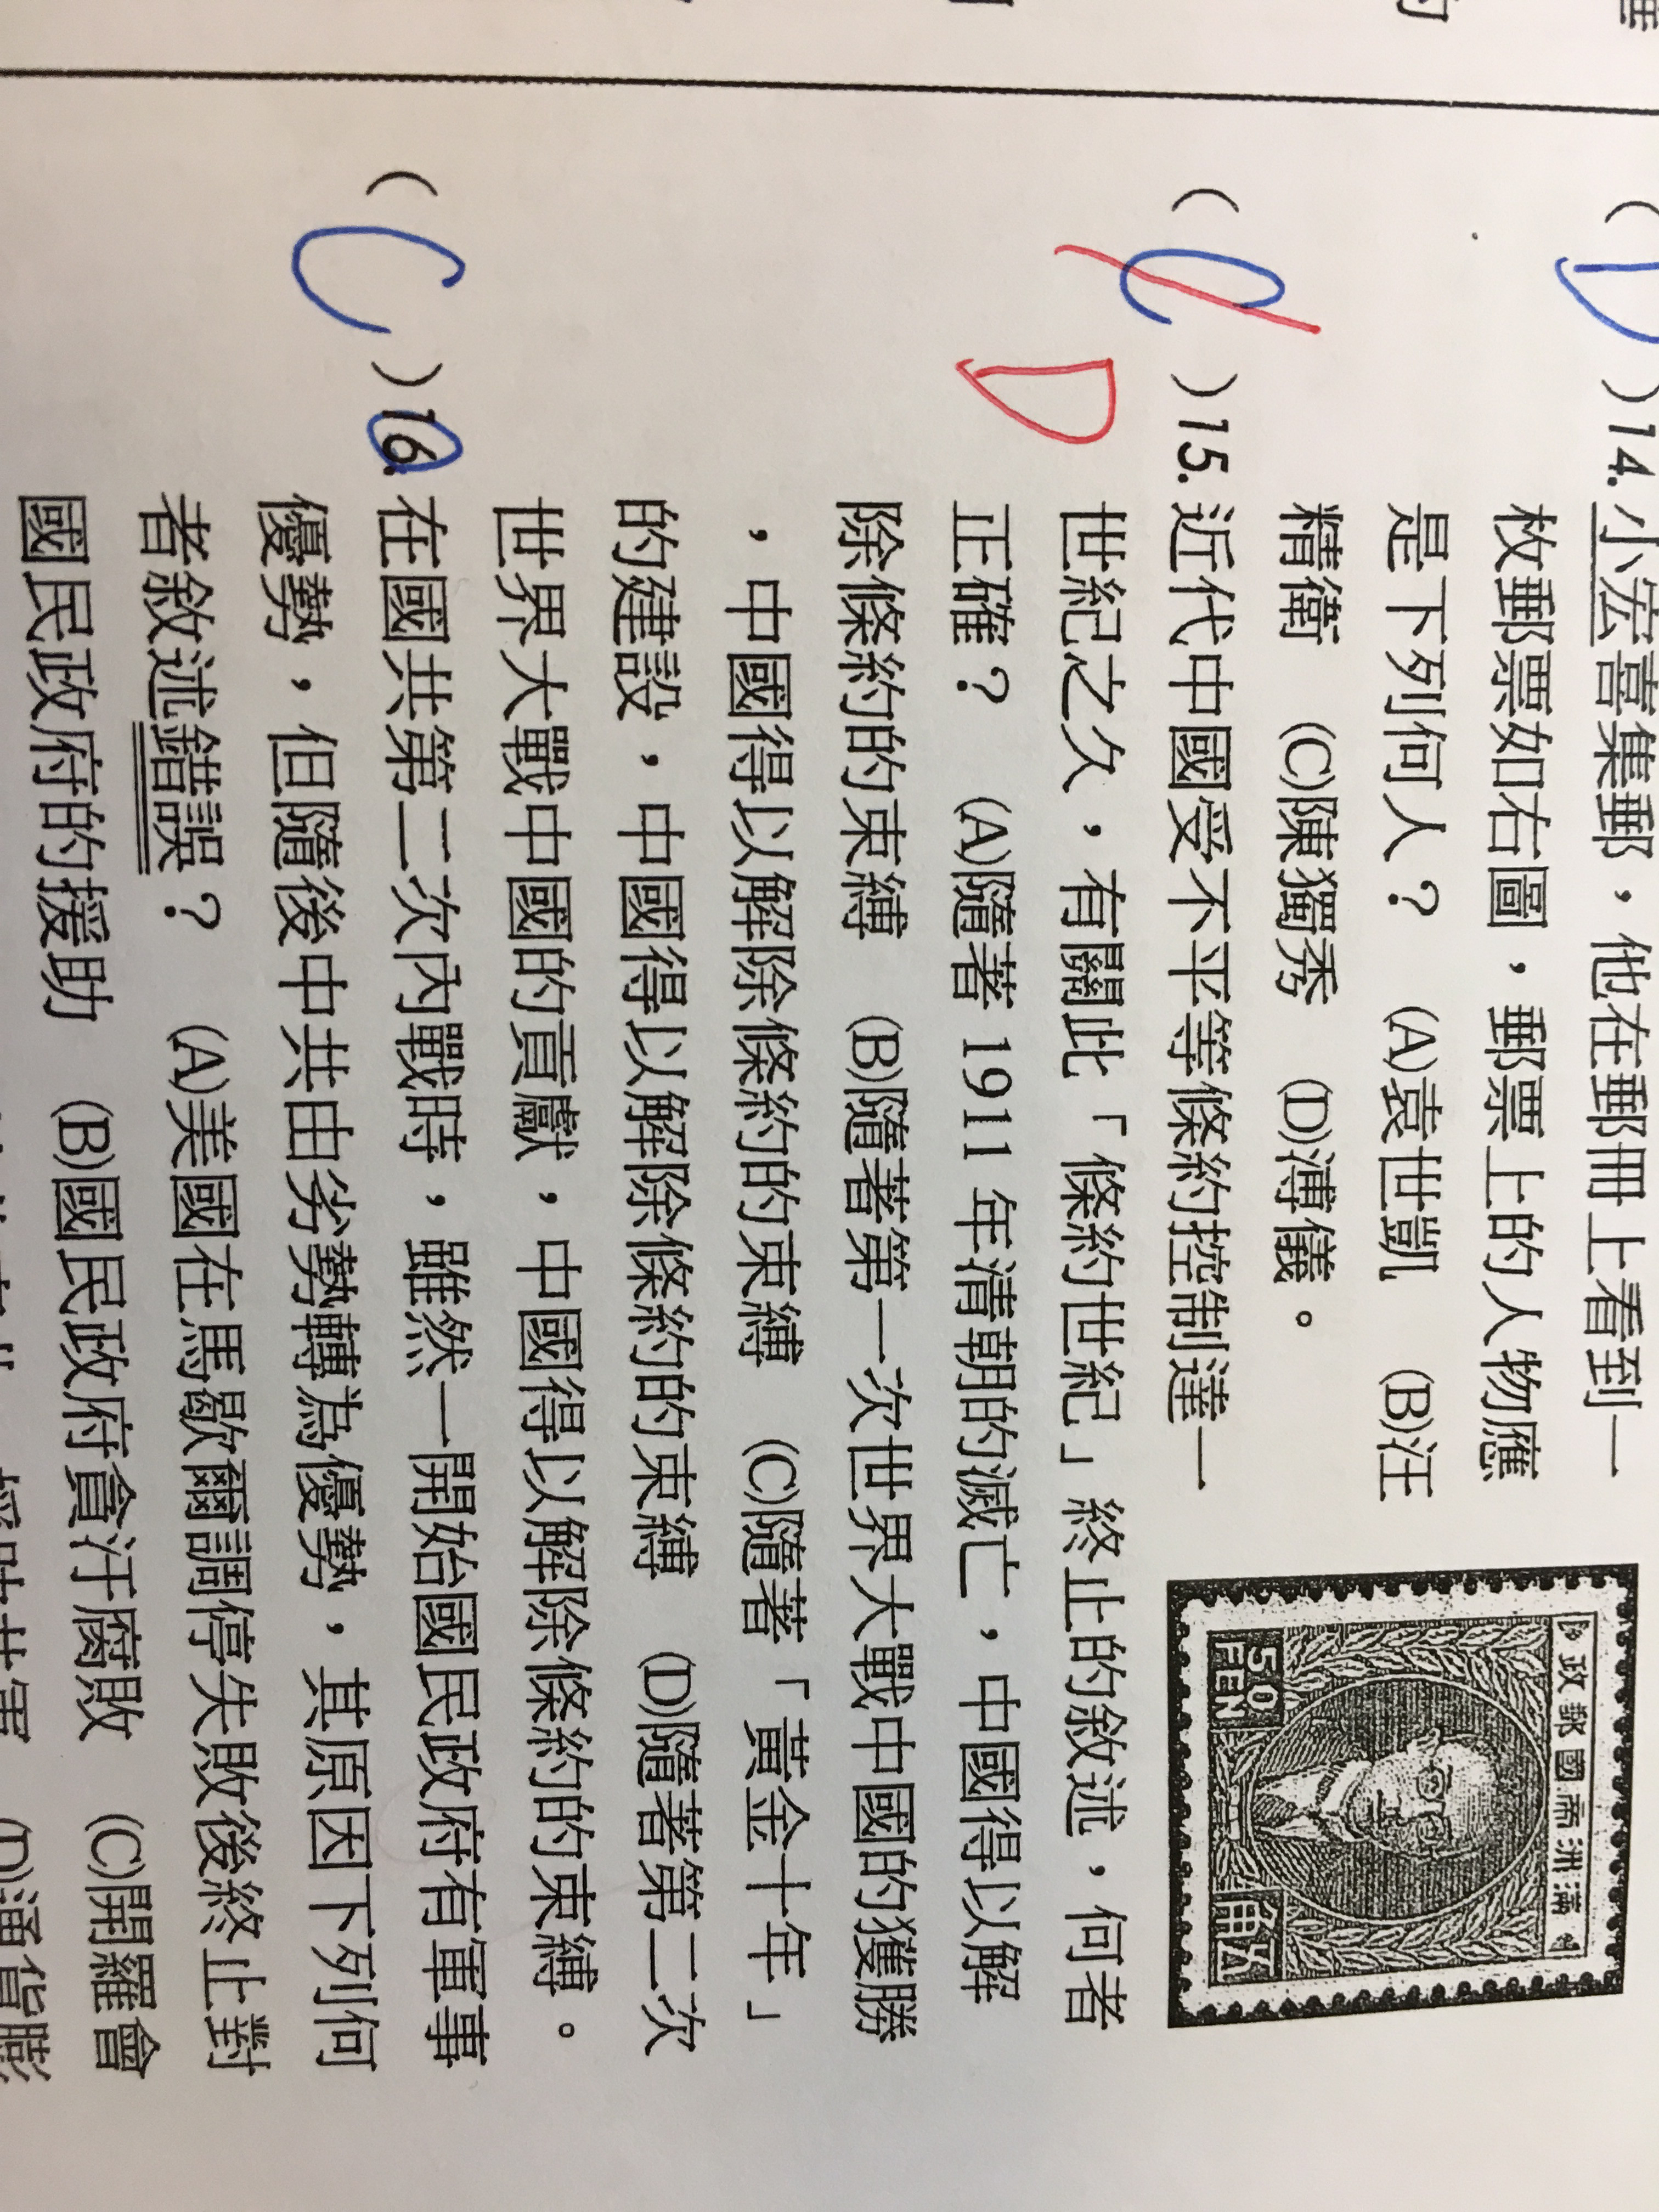 (D)14.小宏喜集郵，他在郵冊上看到一
枚郵票如右圖，郵票上的人物應
是下列何人？ (A)袁世凱 (B)汪
精衛 (C)陳獨秀 (D)溥儀。
滿洲帝國郵政
50
FEN
角五
(C)15.近代中國受不平等條約控制達一
D
世紀之久，有關此「條約世紀」終止的敘述，何者
正確？ (A)隨著 1911 年清朝的滅亡，中國得以解
除條約的束縛 (B)隨著第一次世界大戰中國的獲勝
，中國得以解除條約的束縛 (C)隨著「黃金十年」
的建設，中國得以解除條約的束縛 (D)隨著第二次
世界大戰中國的貢獻，中國得以解除條約的束縛。
(C)16.在國共第二次內戰時，雖然一開始國民政府有軍事
優勢，但隨後中共由劣勢轉為優勢，其原因下列何
者敘述錯誤？ (A)美國在馬歇爾調停失敗後終止對
國民政府的援助 (B)國民政府貪汙腐敗 (C)開羅會
(D)通貨膨